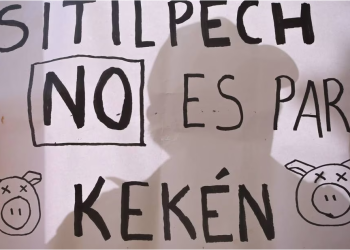 SITILPECH
NO ES PAR
KEKÉN